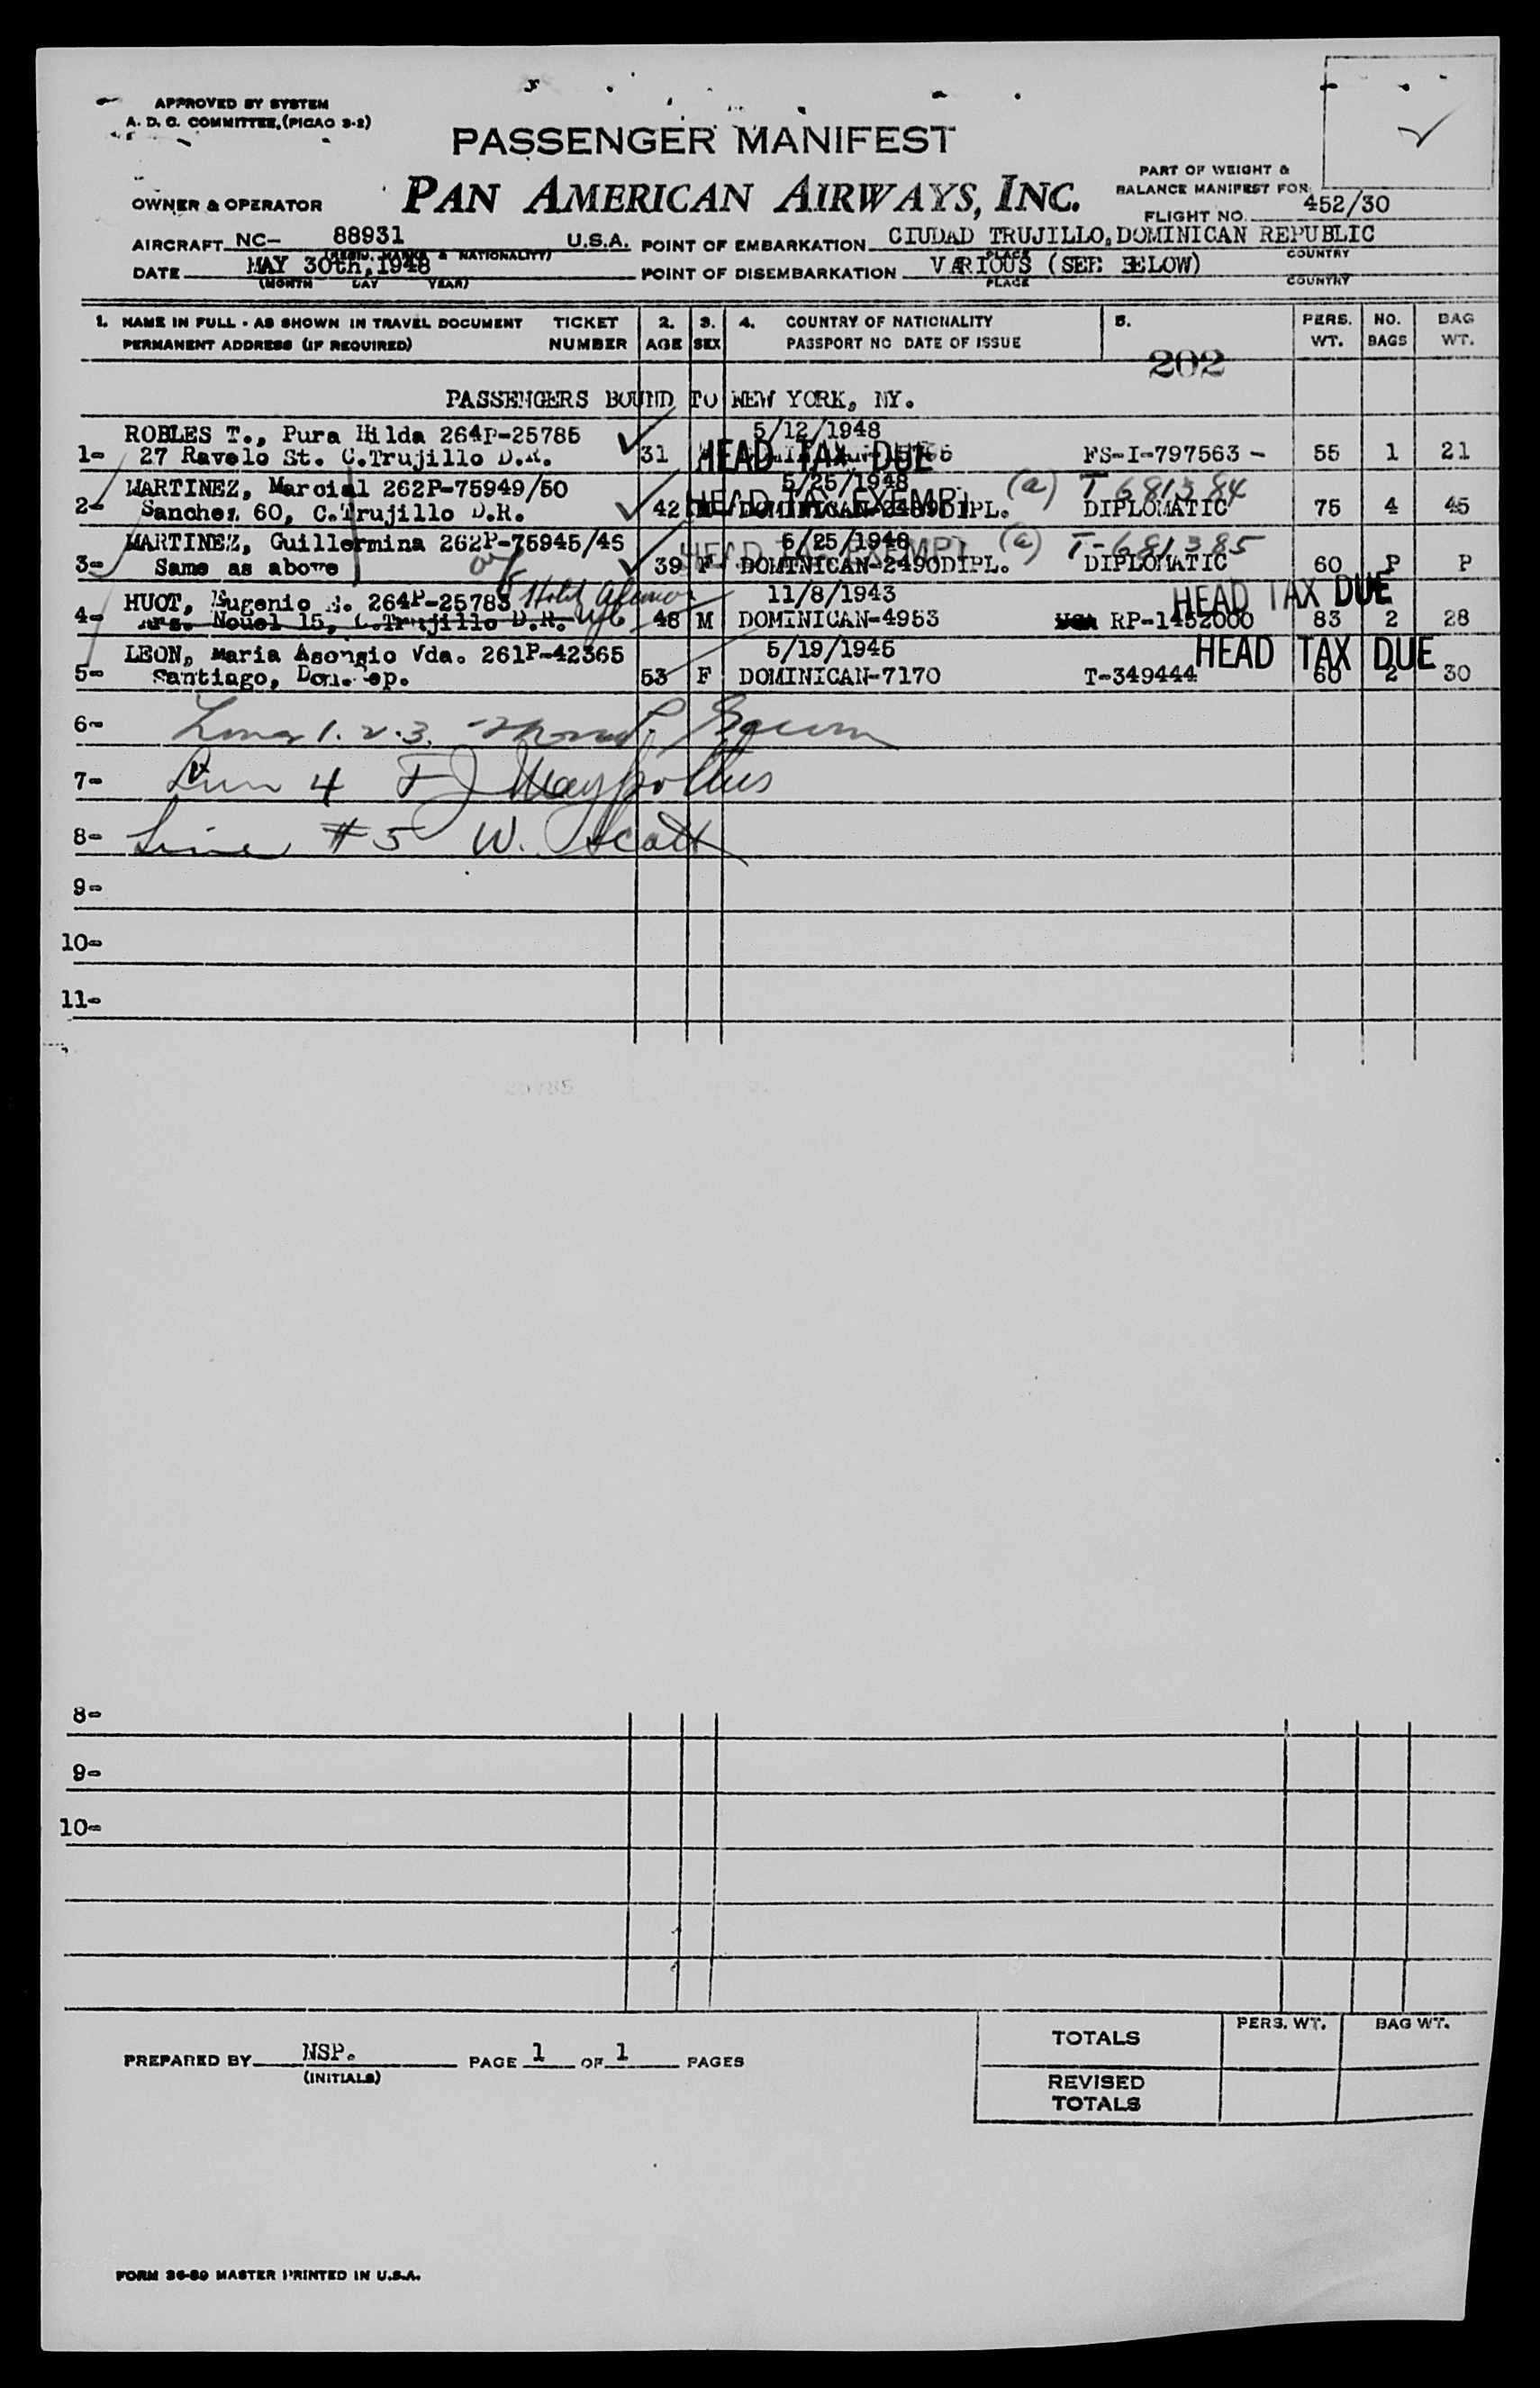 APPROVED BY SYSTEM
A. D. C. COMMITTEE, (PICAO 3-2)
PASSENGER MANIFEST
PART OF WEIGHT &
BALANCE MANIFEST FOR
OWNER & OPERATOR PAN AMERICAN AIRWAYS, INC.
FLIGHT NO. 452/30
AIRCRAFT NC- 88931 U.S.A. POINT OF EMBARKATION CIUDAD TRUJILLO, DOMINICAN REPUBLIC
& NATIONALITY) PLACE COUNTRY
DATE MAY 30th, 1948 POINT OF DISEMBARKATION VARIOUS (SEE BELOW)
(MONTH DAY YEAR) PLACE COUNTRY
1. NAME IN FULL - AS SHOWN IN TRAVEL DOCUMENT TICKET 2. 3. 4. COUNTRY OF NATIONALITY 5. PERS. NO. BAG
PERMANENT ADDRESS (IF REQUIRED) NUMBER AGE SEX PASSPORT NO DATE OF ISSUE WT. BAGS WT.
202
PASSENGERS BOUND TO NEW YORK, NY.
ROBLES T., Pura Hilda 264P-25785 5/12/1948
1- 27 Ravelo St. C.Trujillo D.R. 31 HEAD TAX DUE FS-I-797563 - 55 1 21
MARTINEZ, Marcial 262P-75949/50 5/25/1948 (a) T 681384
2- Sanchez 60, C.Trujillo D.R. 42 HEAD TAX EXEMPT DOMINICAN-2489DIPL. DIPLOMATIC 75 4 45
MARTINEZ, Guillermina 262P-75945/46 5/25/1948 (a) T-681385
3- Same as above 39 F HEAD TAX EXEMPT DOMINICAN-2490DIPL. DIPLOMATIC 60 P P
HUOT, Eugenio E. 264P-25783 Hotel Alamo 11/8/1943 HEAD TAX DUE
4- Arz. Nouel 15, C.Trujillo D.R. NYC 48 M DOMINICAN-4953 RP-1452000 83 2 28
LEON, Maria Asongio Vda. 261P-42365 5/19/1945 HEAD TAX DUE
5- Santiago, Dom. Rep. 53 F DOMINICAN-7170 T-349444 60 2 30
6- Lines 1. 2. 3.
7- Line 4 F J
8- Line #5 W. Scott
9-
10-
11-
8-
9-
10-
TOTALS PERS. WT. BAG WT.
PREPARED BY NSP. PAGE 1 OF 1 PAGES
(INITIALS)
REVISED
TOTALS
FORM 36-80 MASTER PRINTED IN U.S.A.